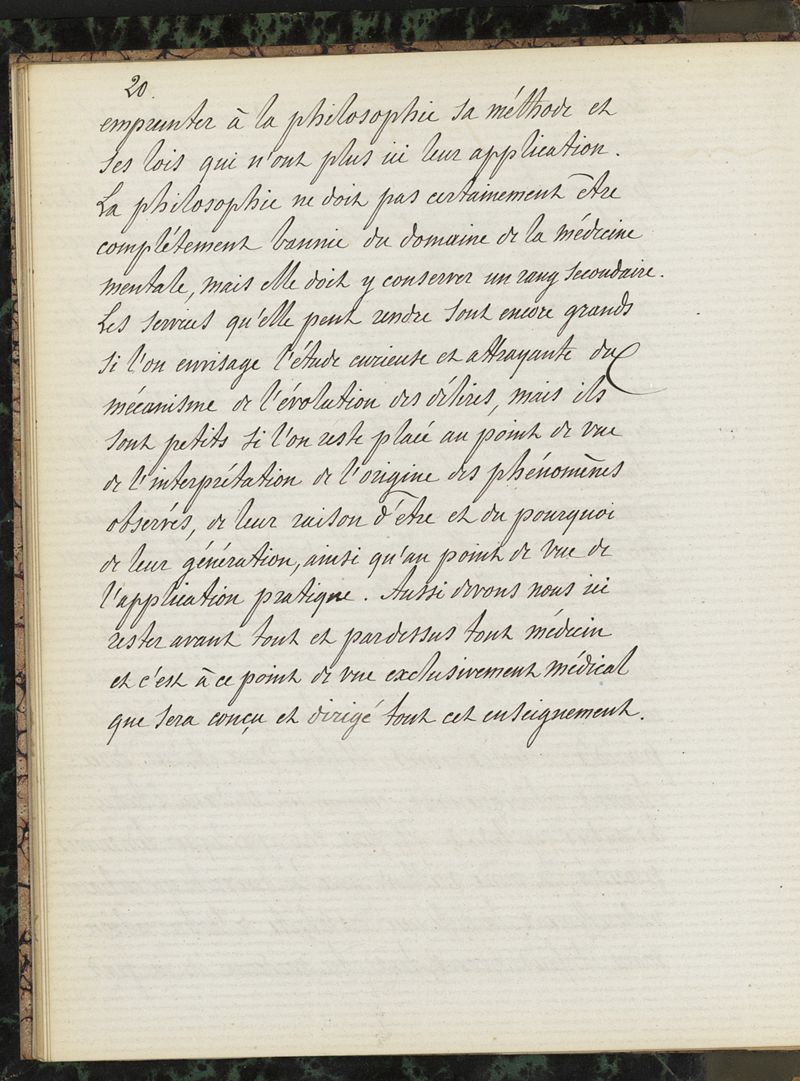 20.
emprunter à la philosophie sa méthode et
ses lois qui n'ont plus ici leur application.
La philosophie ne doit pas certainement être
complétement bannie du domaine de la médecine
mentale, mais elle doit y conserver un rang secondaire.
Les services qu'elle peut rendre sont encore grands
si l'on envisage l'étude curieuse et attrayante du
mécanisme de l'évolution des délires, mais ils
sont petits si l'on reste placé au point de vue
de l'interprétation de l'origine des phénomènes
observés, de leur raison d'être et du pourquoi
de leur génération, ainsi qu'au point de vue de
l'application pratique. Aussi devons nous ici
rester avant tout et pardessus tout médecin
et c'est à ce point de vue exclusivement médical
que sera conçu et dirigé tout cet enseignement.